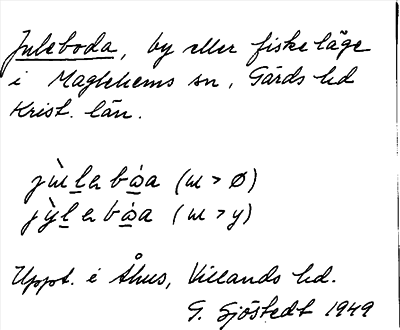 Juleboda, by eller fiskeläge
i Maglehems sn, Gärds hd
Krist. län.
jɯ̀l̲ɘbώ̲a (ɯ > ø)
jỳl̲ɘbώ̲a (ɯ > y)
Uppt. i Åhus, Villands hd.
G. Sjöstedt 1949